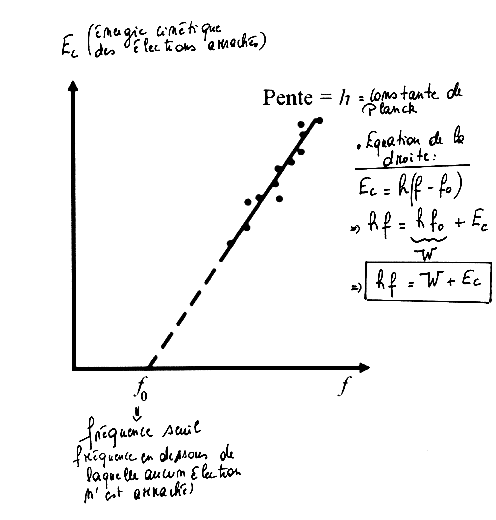 Ec (Energie cinétique
des électrons arrachés)
Pente = h = constante de
Planck
• Equation de la
droite:
Ec = h(f - f₀)
=> hf = hf₀ + Ec
W
=> hf = W + Ec
f₀
f
⇓
fréquence seuil
fréquence en dessous de
laquelle aucun électron
n'est arraché)